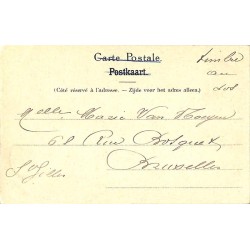 Carte Postale
Postkaart.
(Côté réservé à l'adresse. — Zijde voor het adres alleen.)
timbre
au
dos
Melle Marie Van
68 Rue Bosquet
Bruxelles
St Gilles